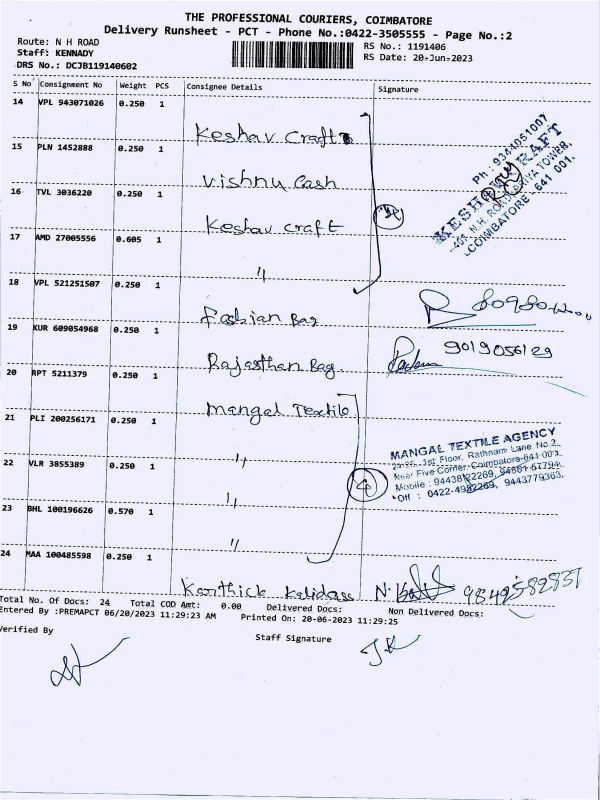 THE PROFESSIONAL COURIERS, COIMBATORE
Delivery Runsheet - PCT - Phone No.:0422-3505555 - Page No.:2
Route: N H ROAD
RS No.: 1191406
Staff: KENNADY
RS Date: 20-Jun-2023
DRS No.: DCJB119140602
S No Consignment No Weight PCS Consignee Details Signature
14 VPL 943071026 0.250 1
Keshav Craft
15 PLN 1452888 0.250 1
Vishnu Cash
16 TVL 3036220 0.250 1
Keshav craft
17 AMD 27005556 0.605 1
"
18 VPL 521251507 0.250 1
Fashion Bag
19 KUR 609054968 0.250 1
Rajasthan Bag 9019056129
20 RPT 5211379 0.250 1
Mangal Textile
21 PLI 200256171 0.250 1
"
22 VLR 3855389 0.250 1
"
23 BHL 100196626 0.570 1
"
24 MAA 100485598 0.250 1
Karthick Kalidass
Ph : 9344051007
KESH CRAFT
COIMBATORE - 641 001.
MANGAL TEXTILE AGENCY
1st Floor, Rathnam Lane No.2,
Near Five Corner-Coimbatore-641 001.
Mobile : 94438 22269,
Off : 0422-4982269, 9443779363,
Total No. Of Docs: 24 Total COD Amt: 0.00 Delivered Docs: Non Delivered Docs:
Entered By :PREMAPCT 06/20/2023 11:29:23 AM Printed On: 20-06-2023 11:29:25
Verified By Staff Signature